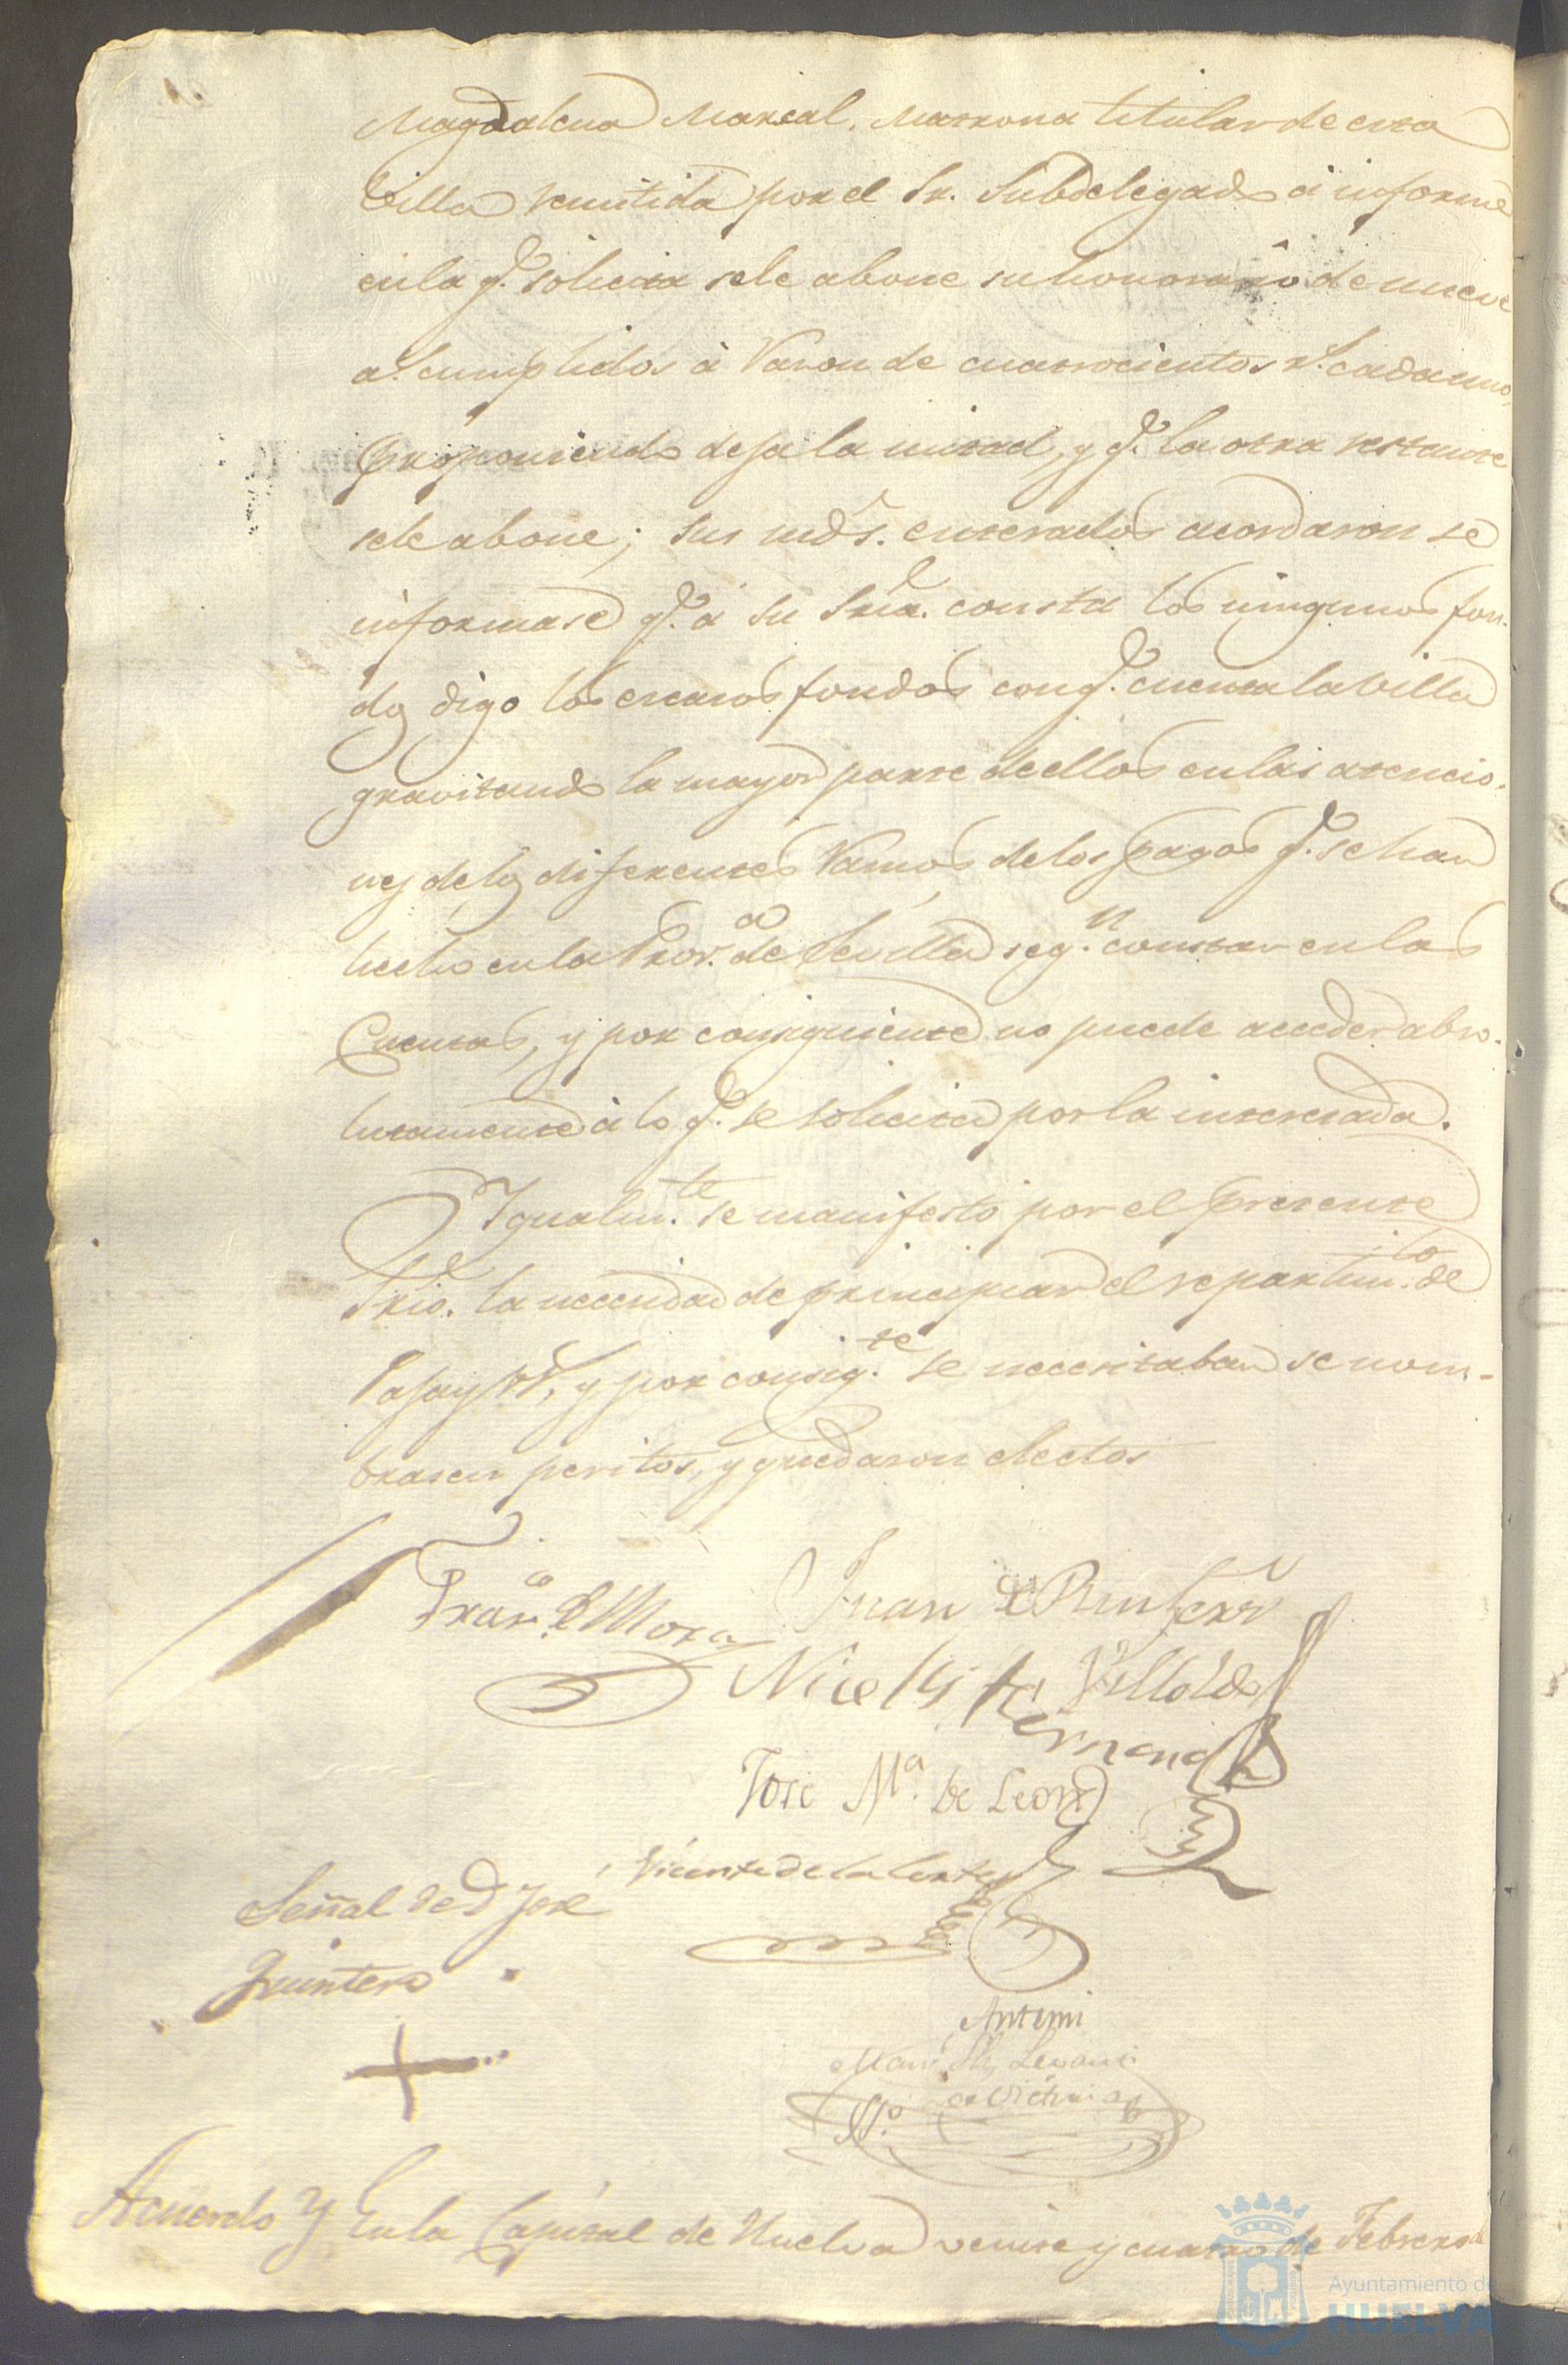 Magdalena Marcal, Matrona titular de esta
Villa remitida por el Sr. Subdelegado á informe
en la q.e solicita se le abone su honorario de nueve
a.s cumplidos à Razon de cuatrocientos r.s cada uno,
proponiendo deja la mitad, y q.e la otra restante
se le abone; sus mds. enterados acordaron se
informase q.e á su Sria. consta los ningunos fon-
dos digo los escasos fondos con q.e cuenta la Villa
gravitando la mayor parte de ellos en las atencio-
nes de los diferentes Ramos de los pagos q.e se han
hecho en la Prov.a de Sevilla seg.n constar en las
Cuentas, y por consiguiente no puede acceder abso-
lutamente à lo q.e se solicita por la interesada.
Igualm.te se manifestó por el presente
Srio. la necesidad de principiar el repartim.to de
Paja y , y por consig.te se necesitaban se nom-
brasen peritos, y quedaron electos
Fran.co de Mora Juan Quintero
Nicolas Villolde
Hernand
Jose M.a de Leon
Vicente de la Corte
Señal de D Jose
Quintero
Antemi
S.o
Acuerdo En la Capital de Huelva veinte y cuatro de Febrero de
Ayuntamiento de
HUELVA